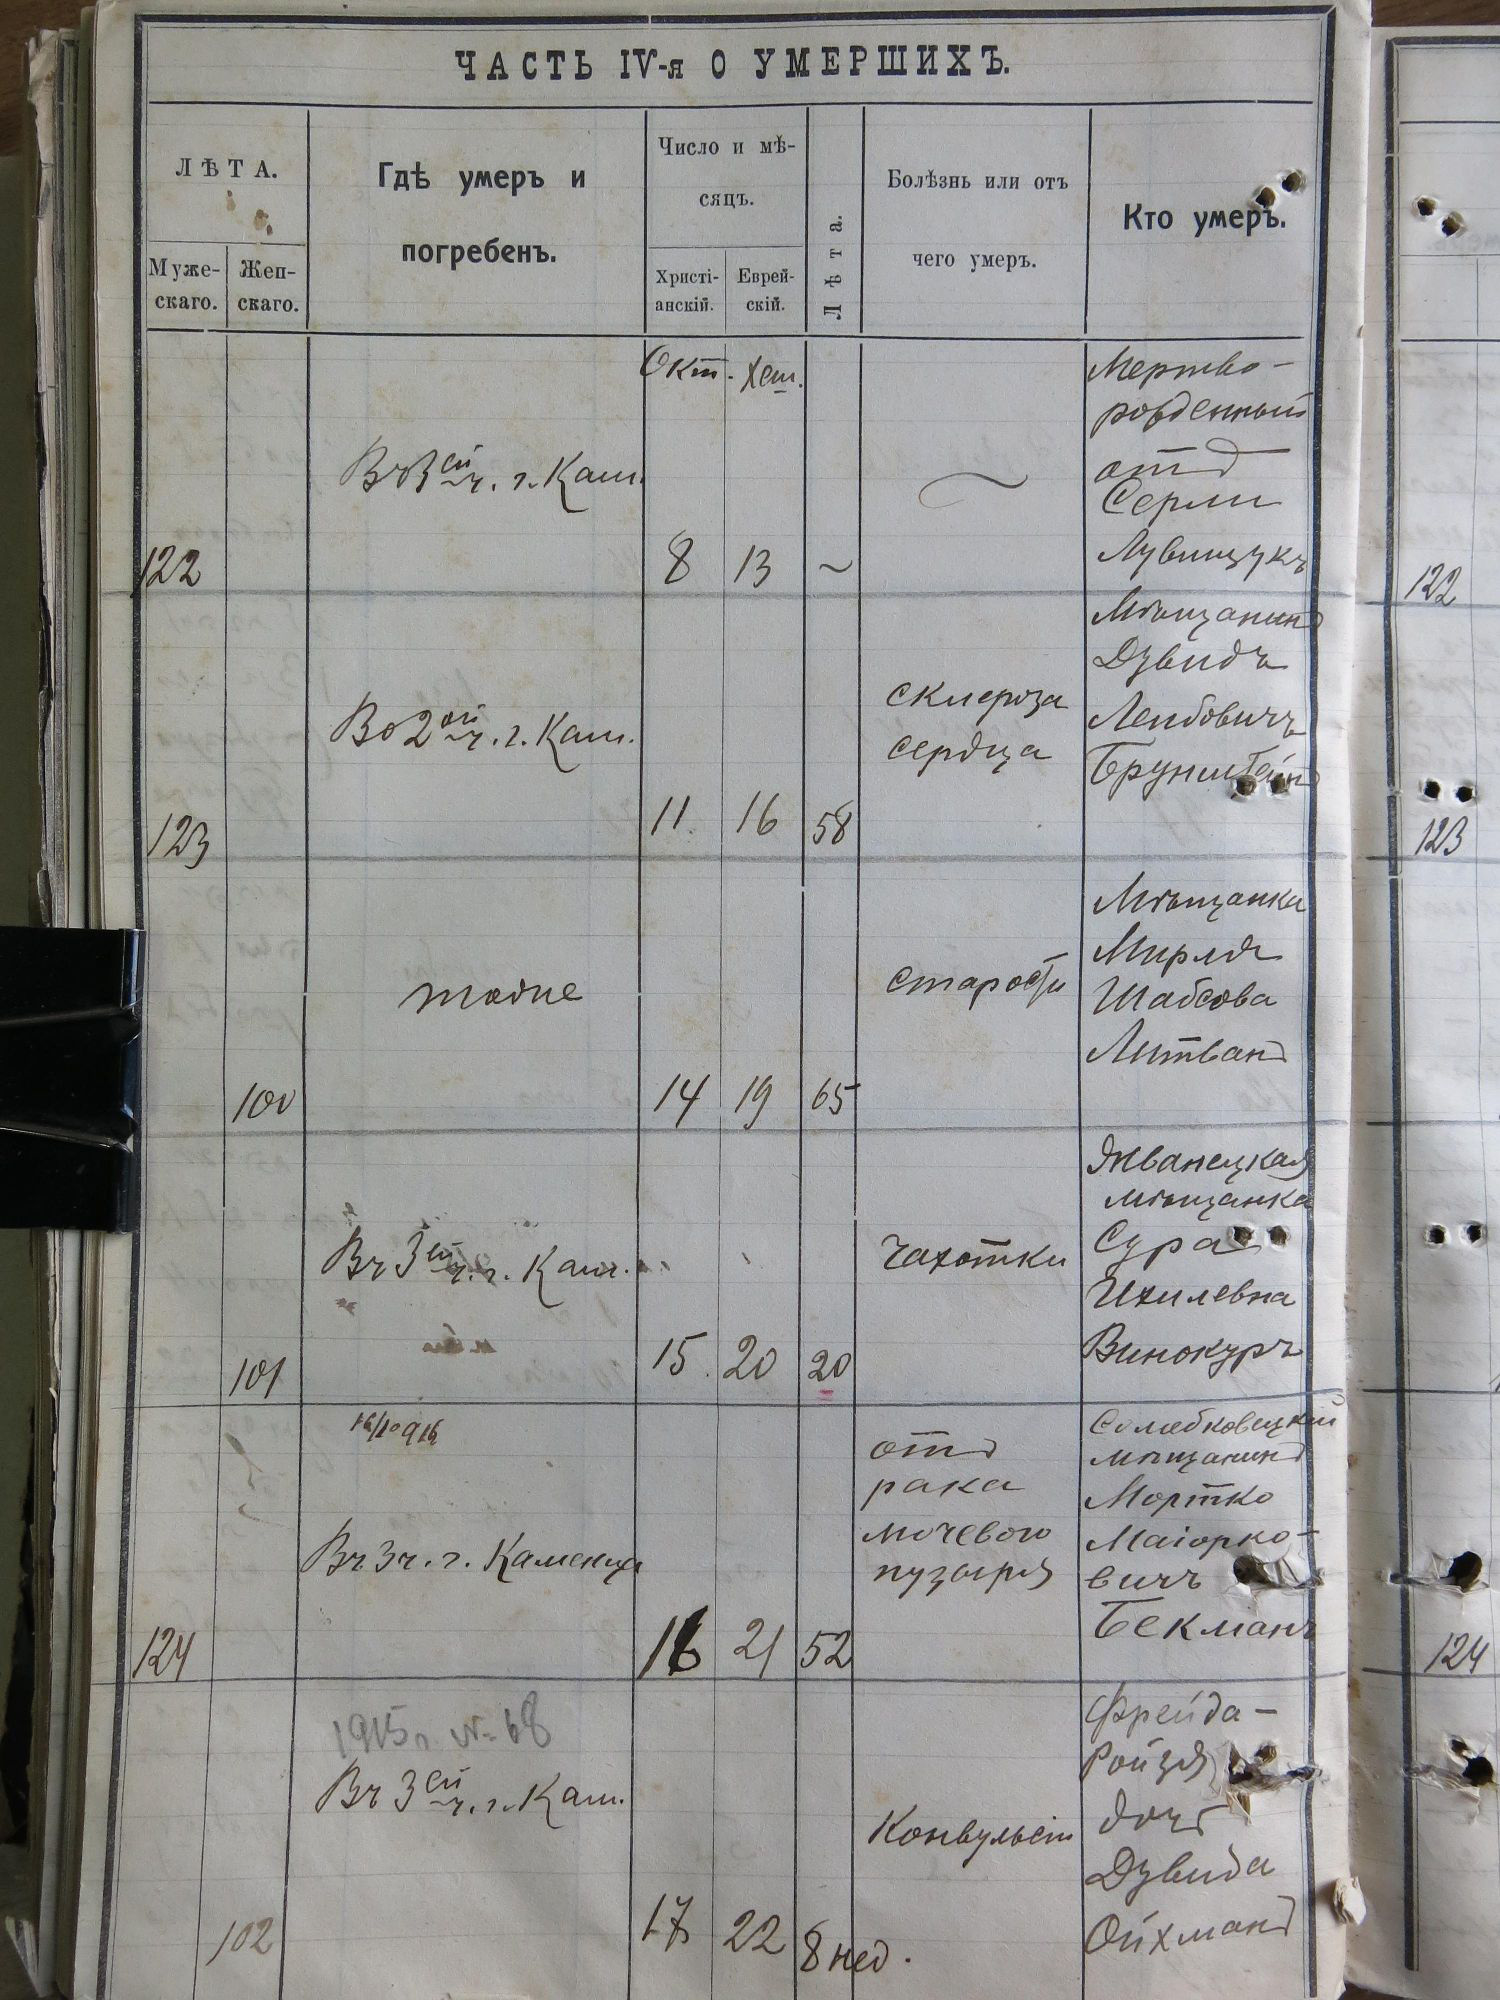 ЧАСТЬ IV-я О УМЕРШИХЪ.
ЛѢТА.
Муже-
скаго.
Жен-
скаго.
Гдѣ умеръ и
погребенъ.
Число и мѣ-
сяцъ.
Христі-
анскій.
Еврей-
скій.
Лѣта.
Болѣзнь или отъ
чего умеръ.
Кто умеръ.
Окт. Хеш.
Въ 3ей ч. г. Кам.
Мертво-
рожденный
отъ
Серли
122
8 13 ~
122
Во 2ой ч. г. Кам.
склероза
сердца
Мѣщанинъ
Дувидъ
Лейбовичъ
Брунштейнъ
123
11 16 58
123
тоже
старости
Мѣщанка
Мирля
Шабсова
Литванъ
100
14 19 65
Въ 3ей ч. г. Кам.
чахотки
Жванецкая
мѣщанка
Сура
Ихилевна
Винокуръ
101
15 20 20
16/10 916
Въ 3 ч. г. Каменца
отъ
рака
мочевого
пузыря
Солобковецкій
мѣщанинъ
Мортко
Маіорко-
вичъ
Бекманъ
124
16 21 52
124
1915 г. № 68
Въ 3ей ч. г. Кам.
Конвульсіи
Фрейда-
Ройзя
дочь
Дувида
Ойхманъ
102
17 22 8 нед.